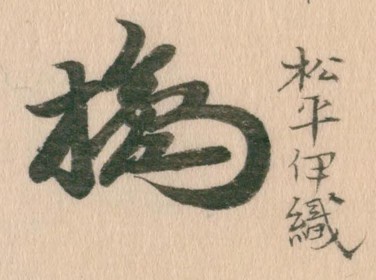 松平伊織